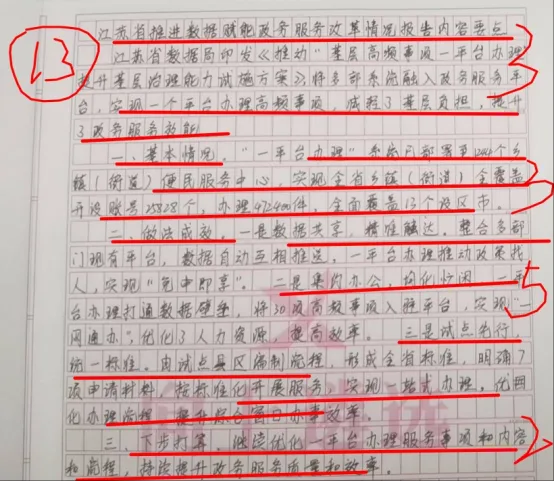 江苏省推进数据赋能政务服务改革情况报告内容要点
13
江苏省数据局印发《推动"基层高频事项一平台办理"
提升基层治理能力试施方案》,将多部系统融入政务服务平
台,实现一个平台办理高频事项,减轻了基层负担,提升
了政务服务效能。
一、基本情况。"一平台办理"系统已部署至1244个乡
镇(街道)便民服务中心,实现全省乡镇(街道)全覆盖
开设账号25828个,办理472400件,全面覆盖13个设区市。
二、做法成效。一是数据共享,精准触达。整合多部
门现有平台,数据自动互相推送。一平台办理推动政策找
人,实现"免申即享"。二是集约办公,均化忙闲。一平
5
台办理打通数据壁垒,将30项高频事项入驻平台,实现"一
网通办",优化了人力资源,提高效率。三是试点先行,
统一标准。由试点县区编制流程,形成全省标准,明确了
项申请材料,按标准化开展服务,实现一站式办理。优
化办理流程,提升综合窗口办事效率。
三、下步打算。继续优化一平台办理服务事项和内容
和流程,持续提升政务服务质量和效率。
2